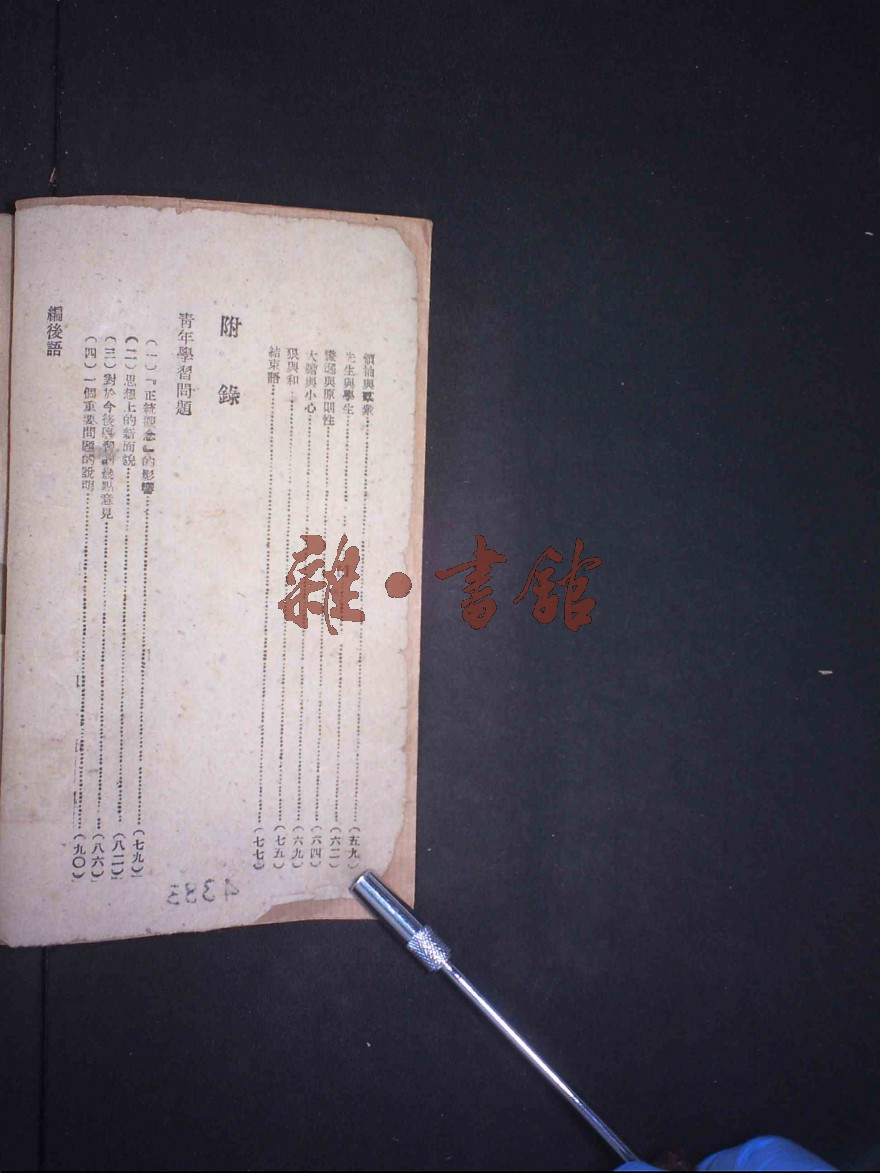 領袖與羣衆……(五九)
先生與學生……(六二)
機遇與原則性……(六四)
大膽與小心……(六九)
狠與和……(七五)
結束語……(七七)
附錄
青年學習問題
(一)『正統觀念』的影響……(七九)
(二)思想上的新面貌……(八二)
(三)對於今後學習幾點意見……(八六)
(四)一個重要問題的說明……(九〇)
編後語
4383
雜·書館